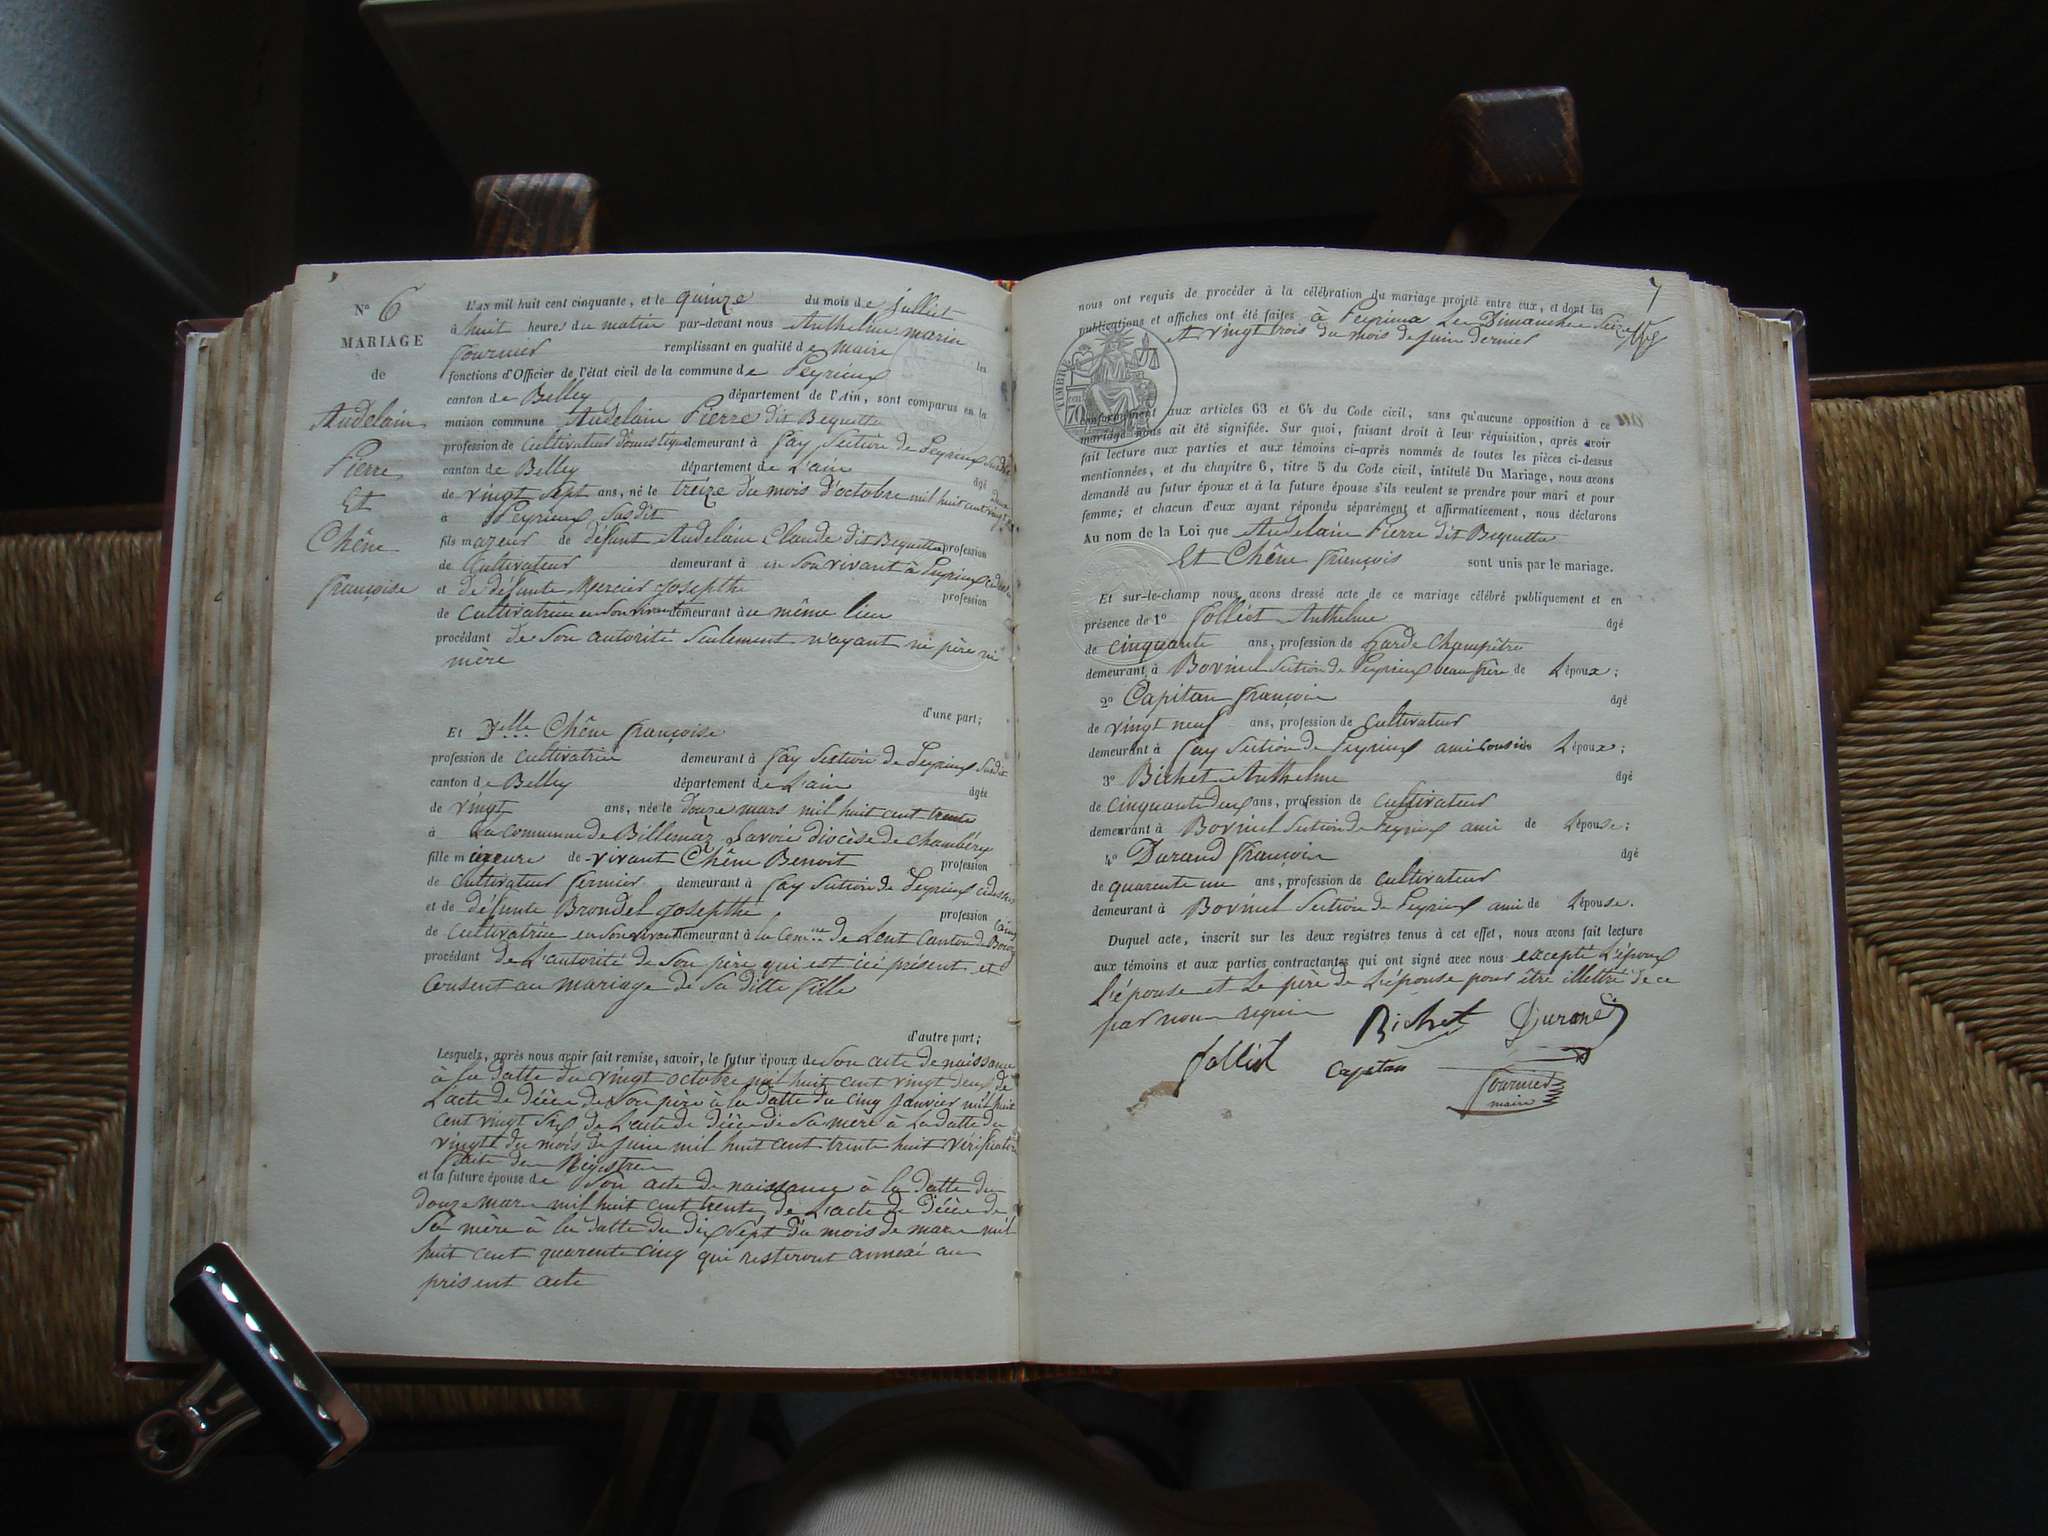 N° 6
MARIAGE
de
Andelain
Pierre
Et
Chêne
françoise
L'AN mil huit cent cinquante, et le quinze du mois de juillet
à huit heures du matin par-devant nous Anthelme marie
fournier remplissant en qualité de maire les
fonctions d'Officier de l'état civil de la commune de Peyrieux
canton de Belley département de l'Ain, sont comparus en la
maison commune Andelain Pierre dit Bequette
profession de Cultivateur domestique demeurant à fay Section de Peyrieux Susdit
canton de Belley département de L'ain âgé
de vingt Sept ans, né le treize du mois d'octobre mil huit cent vingt deux
à Peyrieux Susdit
fils majeur de défunt Andelain Claude dit Bequette profession
de Cultivateur demeurant à en Son vivant à Peyrieux
et de défunte Mercier josepthe profession
de Cultivatrice en Son vivant demeurant à u même lieu
procédant de Son autorité Seulement n'ayant ni père ni
mère
d'une part;
Et Delle Chêne françoise
profession de Cultivatrice demeurant à fay Section de Peyrieux Susdit
canton de Belley département de L'ain âgée
de vingt ans, née le douze mars mil huit cent trente
à La commune de Billemaz Savoie diocèse de Chambéry
fille mineure de vivant Chêne Benoit profession
de Cultivateur fermier demeurant à fay Section de Peyrieux cidessus
et de défunte Brondel josepthe profession
de Cultivatrice en Son vivant demeurant à la Comune de Lent Canton de Bourg
procédant de L'autorité de Son père qui est ici présent et
Consent au mariage de Sa ditte fille
d'autre part;
Lesquels, après nous avoir fait remise, savoir, le futur époux de Son acte de naissance
à La datte du vingt octobre mil huit cent vingt deux de
L'acte de décès de Son père à la datte du cinq janvier mil huit
cent vingt Six de L'acte de décès de Sa mère à La datte du
vingt du mois de juin mil huit cent trente huit vérification
faite des Régistres
et la future épouse de Son acte de naissance à la datte du
douze mars mil huit cent trente de L'acte de décès de
Sa mère à la datte du dix Sept du mois de mars mil
huit cent quarente cinq qui resteront annexé au
présent acte
7
nous ont requis de procéder à la célébration du mariage projeté entre eux, et dont les
publications et affiches ont été faites à Peyrieux Les Dimanches Seize
et vingt trois du mois de juin dernier
TIMBRE
70
conformément aux articles 63 et 64 du Code civil, sans qu'aucune opposition à ce
mariage nous ait été signifiée. Sur quoi, faisant droit à leur réquisition, après avoir
fait lecture aux parties et aux témoins ci-après nommés de toutes les pièces ci-dessus
mentionnées, et du chapitre 6, titre 5 du Code civil, intitulé Du Mariage, nous avons
demandé au futur époux et à la future épouse s'ils veulent se prendre pour mari et pour
femme; et chacun d'eux ayant répondu séparément et affirmativement, nous déclarons
Au nom de la Loi que Andelain Pierre dit Bequette
Et Chêne françois sont unis par le mariage.
Et sur-le-champ nous avons dressé acte de ce mariage célébré publiquement et en
présence de 1° Folliet Anthelme âgé
de cinquante ans, profession de Garde Champêtre
demeurant à Bovinel Section de Peyrieux beau frère de L'époux;
2° Capitan françois âgé
de vingt neuf ans, profession de Cultivateur
demeurant à fay Section de Peyrieux ami L'époux;
3° Bichet Anthelme âgé
de cinquante deux ans, profession de Cultivateur
demeurant à Bovinel Section de Peyrieux ami de L'épouse;
4° Durand françois âgé
de quarente un ans, profession de Cultivateur
demeurant à Bovinel Section de Peyrieux ami de L'épouse.
Duquel acte, inscrit sur les deux registres tenus à cet effet, nous avons fait lecture
aux témoins et aux parties contractantes qui ont signé avec nous excepté L'époux
L'épouse et Le père de L'épouse pour être illettré de ce
par nous requis
Bichet Durand
folliet Capitan
fournier
maire